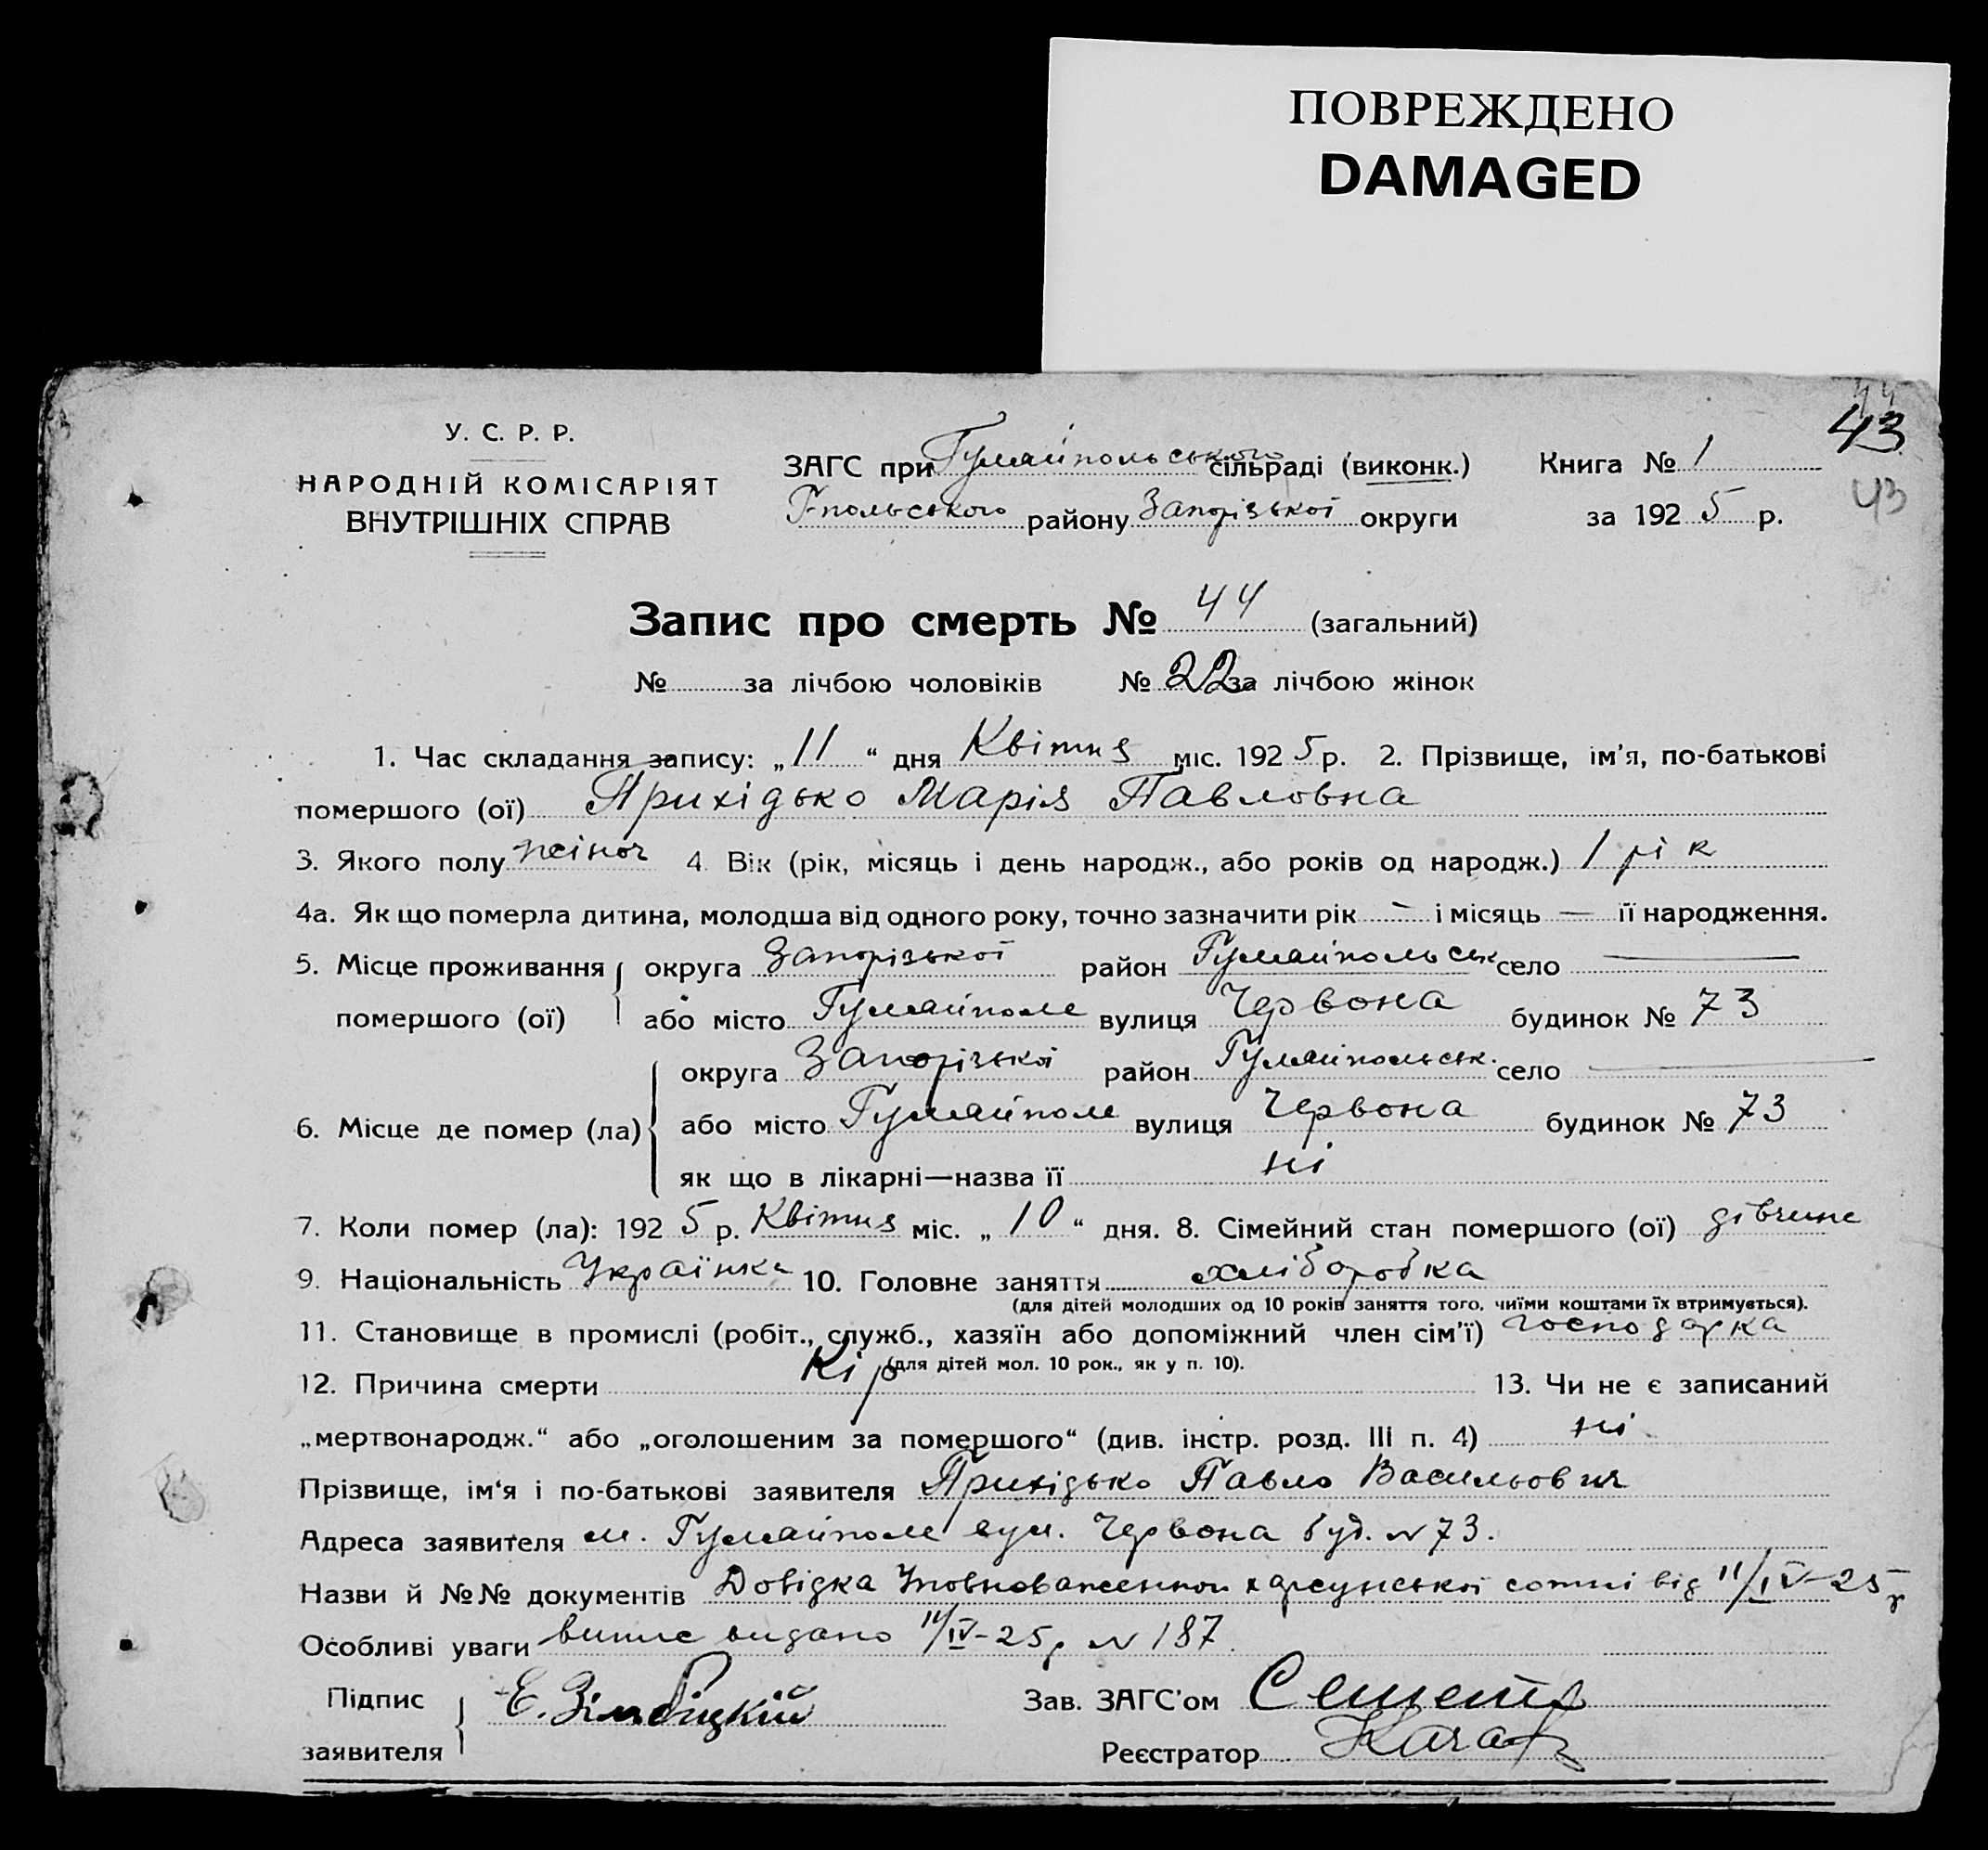 ПОВРЕЖДЕНО
DAMAGED
43
43
У. С. Р. Р.
НАРОДНІЙ КОМІСАРІЯТ
ВНУТРІШНІХ СПРАВ
ЗАГС при Гуляйпольського сільраді (виконк.) Книга № 1
Г-польського району Запорізької округи за 1925 р.
Запис про смерть № 44 (загальний)
№ за лічбою чоловіків № 22 за лічбою жінок
1. Час складання запису: „11“ дня Квітня міс. 1925 р. 2. Прізвище, ім’я, по-батькові
помершого (ої) Прихідько Марія Павловна
3. Якого полу жіноч 4. Вік (рік, місяць і день народж., або років од народж.) 1 рік
4а. Як що померла дитина, молодша від одного року, точно зазначити рік — і місяць — її народження.
5. Місце проживання помершого (ої) округа Запорізької район Гуляйпольськ село —
або місто Гуляйполе вулиця Червона будинок № 73
6. Місце де помер (ла) округа Запорізької район Гуляйпольськ. село —
або місто Гуляйполе вулиця Червона будинок № 73
як що в лікарні—назва її ні
7. Коли помер (ла): 1925 р. Квітня міс. „10“ дня. 8. Сімейний стан помершого (ої) дівчина
9. Національність Українка 10. Головне заняття хліборобка
(для дітей молодших од 10 років заняття того, чиїми коштами їх втримується).
11. Становище в промислі (робіт., служб., хазяїн або допоміжний член сім’ї) господарка
(для дітей мол. 10 рок., як у п. 10).
12. Причина смерти Кір 13. Чи не є записаний
„мертвонародж.“ або „оголошеним за помершого“ (див. інстр. розд. III п. 4) ні
Прізвище, ім‘я і по-батькові заявителя Прихідько Павло Васильович
Адреса заявителя м. Гуляйполе вул. Червона буд. № 73.
Назви й №№ документів Довідка Уповноваженної херсунської сотні від 11/IV-25 р
Особливі уваги випис видано 11/IV-25 р № 187.
Підпис заявителя Е.
Зав. ЗАГС’ом
Реєстратор